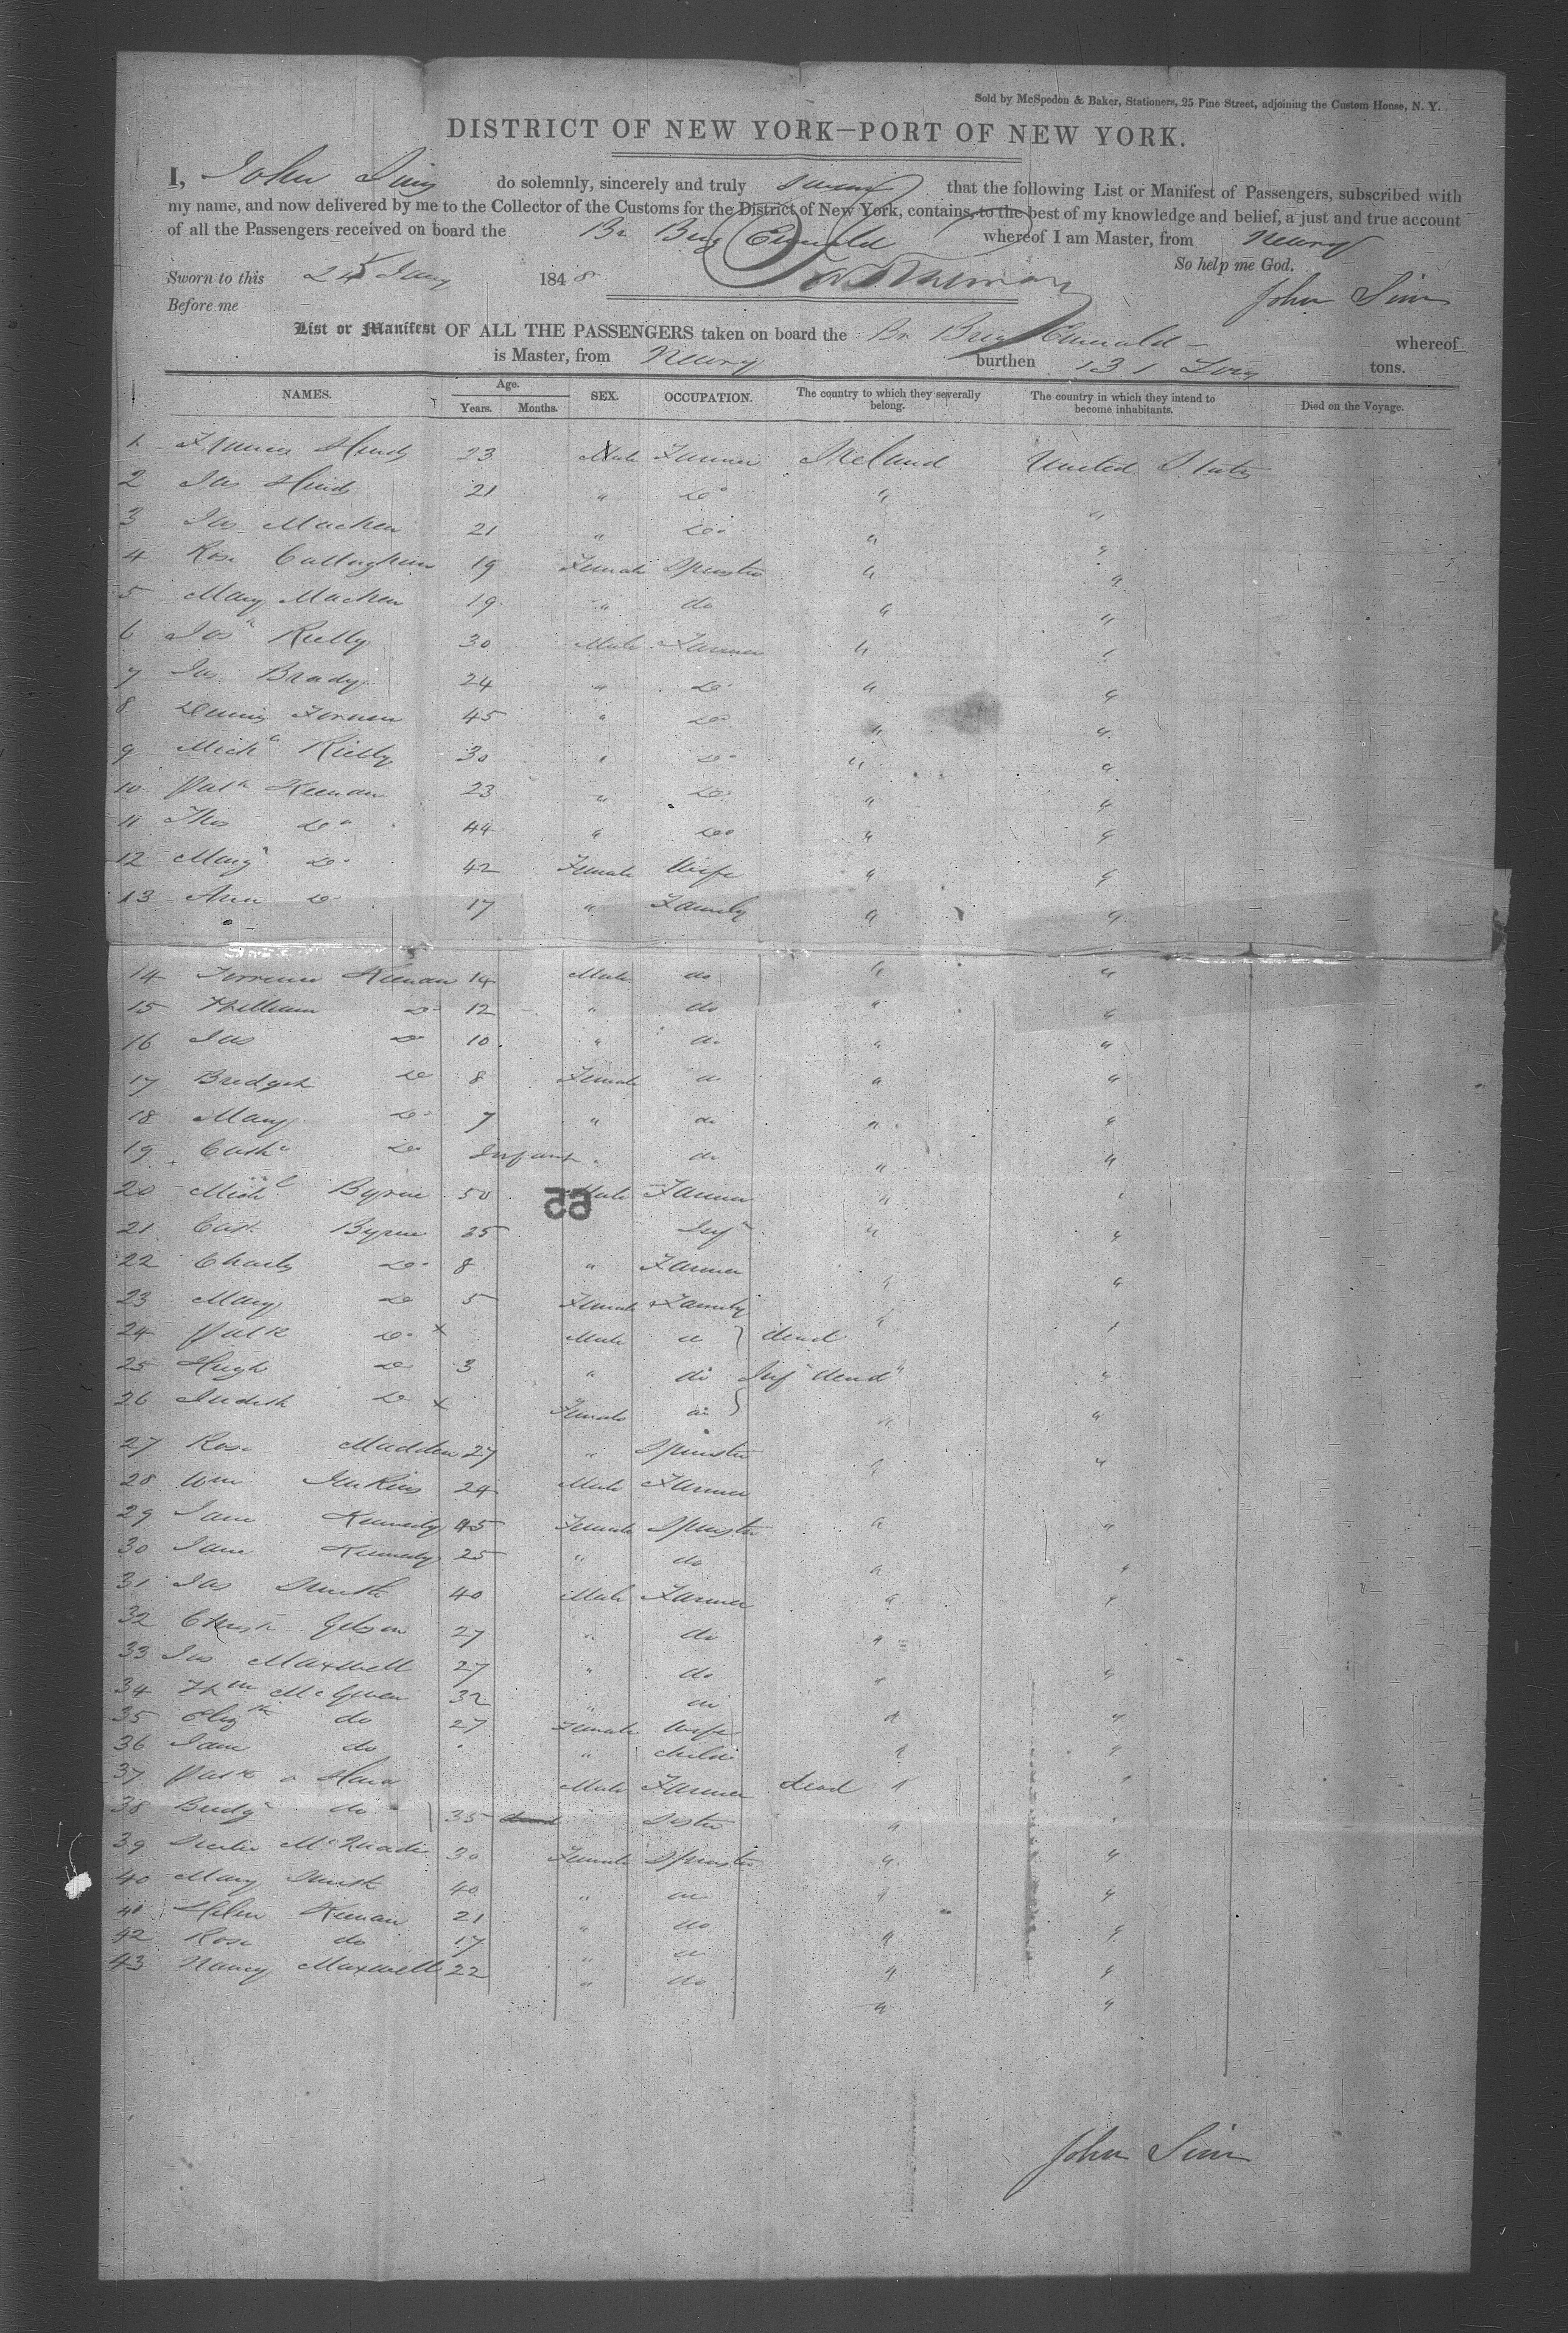 Sold by McSpedon & Baker, Stationers, 25 Pine Street, adjoining the Custom House, N. Y.
DISTRICT OF NEW YORK—PORT OF NEW YORK.
I, John Sim do solemnly, sincerely and truly swear that the following List or Manifest of Passengers, subscribed with
my name, and now delivered by me to the Collector of the Customs for the District of New York, contains, to the best of my knowledge and belief, a just and true account
of all the Passengers received on board the Br Brig Emerald whereof I am Master, from Newry
So help me God.
Sworn to this 24 Jany 1848
Before me John Sim
List or Manifest OF ALL THE PASSENGERS taken on board the Br Brig Emerald whereof
is Master, from Newry burthen 131 Tons tons.
NAMES. Age. Years. Months. SEX. OCCUPATION. The country to which they severally belong. The country in which they intend to become inhabitants. Died on the Voyage.
1 Francis 23 Male Farmer Ireland United States
2 Jas 21 " Do " "
3 Jas Macken 21 " Do " "
4 Rose Callaghan 19 Female Spinster " "
5 Mary Macken 19 " do " "
6 Jos Reilly 30 Male Farmer " "
7 Jas Brady 24 " Do " "
8 Dennis 45 " Do " "
9 Michl Rielly 30 " Do " "
10 Patk Keenan 23 " Do " "
11 Thos Do 44 " Do " "
12 Margt Do 42 Female Wife " "
13 Ann Do 17 " Family " "
14 Terrence Keenan 14 Male do " "
15 William Do 12 " do " "
16 Jas Do 10 " do " "
17 Bridget Do 8 Female do " "
18 Mary Do 7 " do " "
19 Cathe Do Infant " do " "
20 Michl Byrne 50 Male Farmer " "
21 Cath Byrne 35 "
22 Charles Do 8 " Farmer " "
23 Mary Do 5 Female Family " "
24 Patk Do x Male do } dead
25 Hugh Do 3 " do Inf dead " "
26 Judith Do x Female do } " "
27 Rose Madden 27 " Spinster " "
28 Wm Jenkins 24 Male Farmer
29 Jane Kennedy 45 Female Spinster " "
30 Jane Kennedy 25 " do " "
31 Jas Smith 40 Male Farmer " "
32 Christr Gibson 27 " do "
33 Jas Maxwell 27 " do " "
34 Wm 32 " do " "
35 Elizth do 27 Female Wife " "
36 Jane do " child " "
37 Patk o Hara Male Farmer dead "
38 Bridgt do 35 Sister " "
39 McQuade 30 Female Spinster " "
40 Mary Smith 40 " do " "
41 Helen Keenan 21 " do " "
42 Rose do 17 " do " "
43 Nancy Maxwell 22 " do " "
John Sim